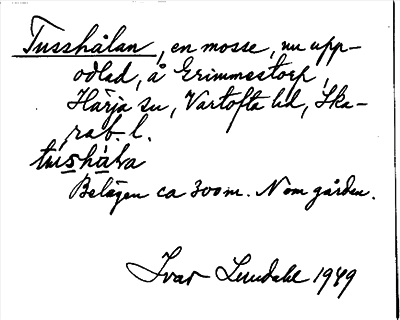 Tusshålan, en mosse, nu upp-
odlad, å Grimmestorp,
Härja sn, Vartofta hd, Ska-
rab. l.
tùshàla
Belägen ca 300 m. N om gården.
Ivar Lundahl 1949